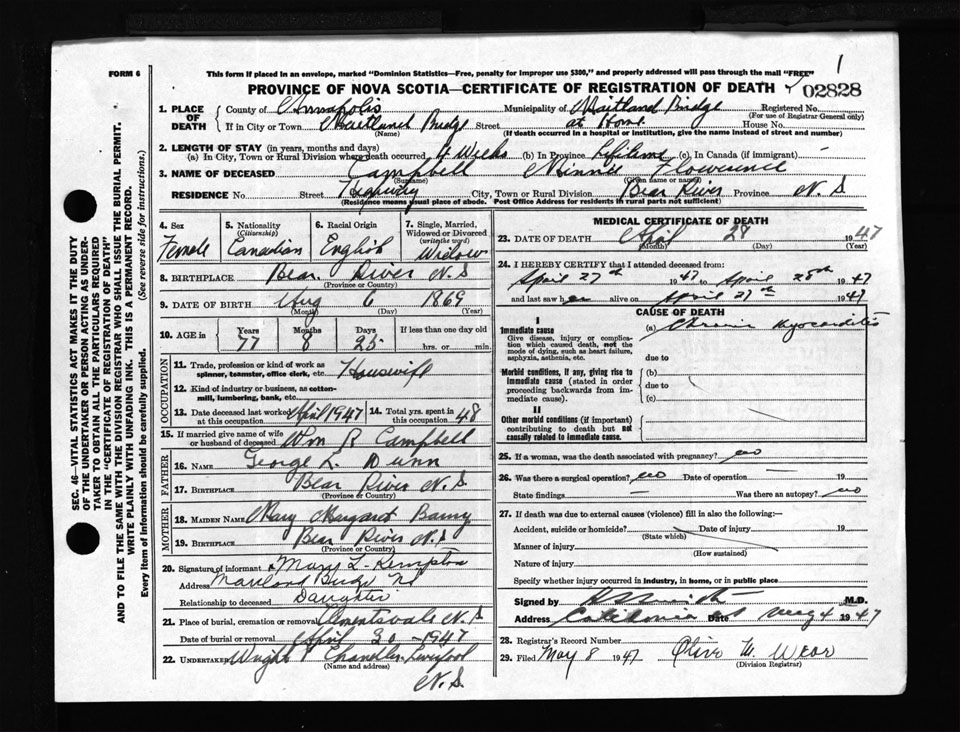 1
FORM 6
This form if placed in an envelope, marked "Dominion Statistics—Free, penalty for improper use $300," and properly addressed will pass through the mail "FREE"
PROVINCE OF NOVA SCOTIA—CERTIFICATE OF REGISTRATION OF DEATH 02828
SEC. 46—VITAL STATISTICS ACT MAKES IT THE DUTY
OF THE UNDERTAKER OR PERSON ACTING AS UNDER-
TAKER TO OBTAIN ALL THE PARTICULARS REQUIRED
IN THE "CERTIFICATE OF REGISTRATION OF DEATH"
AND TO FILE THE SAME WITH THE DIVISION REGISTRAR WHO SHALL ISSUE THE BURIAL PERMIT.
WRITE PLAINLY WITH UNFADING INK. THIS IS A PERMANENT RECORD.
Every item of information should be carefully supplied. (See reverse side for instructions.)
1. PLACE OF DEATH County of Annapolis Municipality of Maitland Bridge Registered No.
(For use of Registrar General only)
If in City or Town Maitland Bridge Street at Home House No.
(Name) (If death occurred in a hospital or institution, give the name instead of street and number)
2. LENGTH OF STAY (in years, months and days)
(a) In City, Town or Rural Division where death occurred Weeks (b) In Province Lifetime (c) In Canada (if immigrant) —
3. NAME OF DECEASED Campbell Minnie Flowerence
(Surname) (Given name or names)
RESIDENCE No. Street Highway City, Town or Rural Division Bear River Province N.S
(Residence means usual place of abode. Post Office Address for residents in rural parts not sufficient)
4. Sex 5. Nationality (Citizenship) 6. Racial Origin 7. Single, Married, Widowed or Divorced (write the word)
Female Canadian English Widow
8. BIRTHPLACE Bear River N.S
(Province or Country)
9. DATE OF BIRTH Aug 6 1869
(Month) (Day) (Year)
10. AGE in Years Months Days If less than one day old
77 8 25 hrs. or min.
OCCUPATION
11. Trade, profession or kind of work as
spinner, teamster, office clerk, etc. Housewife
12. Kind of industry or business, as cotton-
mill, lumbering, bank, etc.
13. Date deceased last worked at this occupation April 1947 14. Total yrs. spent in this occupation 48
15. If married give name of wife or husband of deceased Wm R Campbell
FATHER
16. NAME George L. Dunn
17. BIRTHPLACE Bear River N.S
(Province or Country)
MOTHER
18. MAIDEN NAME Mary Margaret
19. BIRTHPLACE Bear River N.S
(Province or Country)
20. Signature of informant Mary L. Kempton
Address Maitland Bridge NS
Relationship to deceased Daughter
21. Place of burial, cremation or removal Clementsvale N.S
Date of burial or removal April 30 - 1947
22. UNDERTAKER Wright Chandler Liverpool
(Name and address)
N.S
MEDICAL CERTIFICATE OF DEATH
23. DATE OF DEATH April 28 1947
(Month) (Day) (Year)
24. I HEREBY CERTIFY that I attended deceased from:
April 27th 1947 to April 28th 1947
and last saw her alive on April 27th 1947
CAUSE OF DEATH
I
Immediate cause (a) Chronic Myocarditis
Give disease, injury or complica-
tion which caused death, not the
mode of dying, such as heart failure,
asphyxia, asthenia, etc. due to
Morbid conditions, if any, giving rise to (b)
immediate cause (stated in order due to
proceeding backwards from im-
mediate cause). (c)
II
Other morbid conditions (if important)
contributing to death but not
causally related to immediate cause.
25. If a woman, was the death associated with pregnancy? no
26. Was there a surgical operation? no Date of operation — 19
State findings — Was there an autopsy? no
27. If death was due to external causes (violence) fill in also the following:—
Accident, suicide or homicide? Date of injury 19
(State which)
Manner of injury
(How sustained)
Nature of injury
Specify whether injury occurred in industry, in home, or in public place
Signed by M.D.
Address Caledonia Date May 4 1947
28. Registrar's Record Number
29. Filed May 8 1947 Olive M. Wear
(Division Registrar)